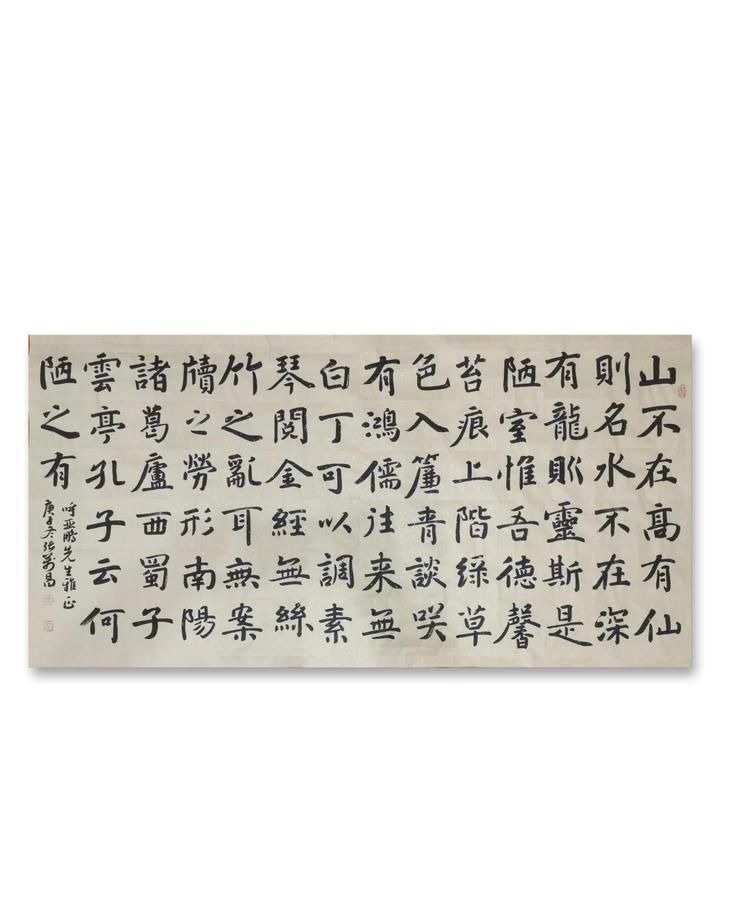 山不在高有仙
則名水不在深
有龍則靈斯是
陋室惟吾德馨
苔痕上階綠草
色入簾青談咲
有鴻儒往来無
白丁可以調素
琴閲金經無絲
竹之亂耳無案
牘之勞形南陽
諸葛廬西蜀子
雲亭孔子云何
陋之有
呼亚鵬先生雅正
庚子冬张萬昌